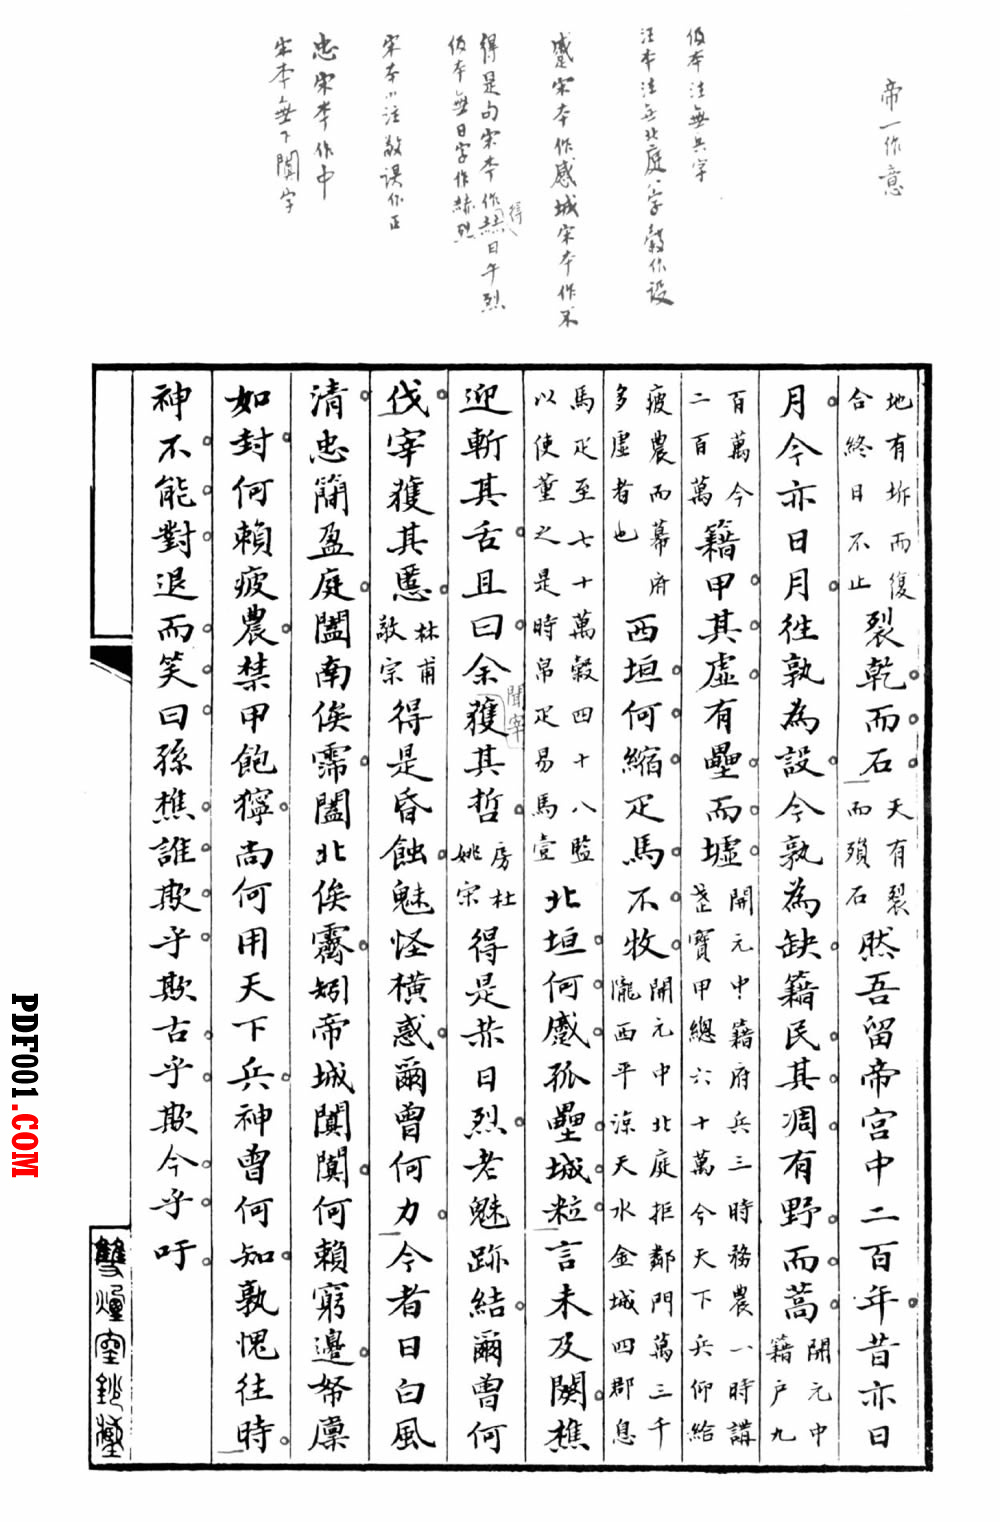 帝一作意
仮本注無兵字
汪本注無北庭二字穀作設
蹙宋本作感城宋本作米
得是句宋本作赫日午烈
得
仮本無日字作赫烈
宋本小注敬误作正
忠宋本作中
宋本無下闐字
地有坼而復合終日不止裂乾而石天有裂而殞石然吾留帝宫中二百年昔亦日
月今亦日月往孰為設今孰為缺籍民其凋有野而蒿開元中籍户九
百萬今二百萬籍甲其虛有壘而墟開元中籍府兵三時務農一時講寳甲總六十萬今天下兵仰給
疲農而幕府多虛者也西垣何縮疋馬不牧開元中北庭拒鄰門萬三千隴西平涼天水金城四郡息
馬疋至七十萬穀四十八監以使董之是時帛疋易馬壹北垣何蹙孤壘城粒言未及闋樵
迎斬其舌且曰余獲其哲房杜姚宋得是日烈老魅跡結爾曾何
聞宰
伐宰獲其慝林甫敬宗得是昏蝕魅怪橫惑爾曾何力今者日白風
清忠簡盈庭闔南俟霈闔北俟霽矧帝城闐闐何賴窮邊帑廩
如封何賴疲農禁甲飽獰尚何用天下兵神曾何知孰愧往時
神不能對退而笑曰孫樵誰欺乎欺古乎欺今乎吁
PDF001.COM